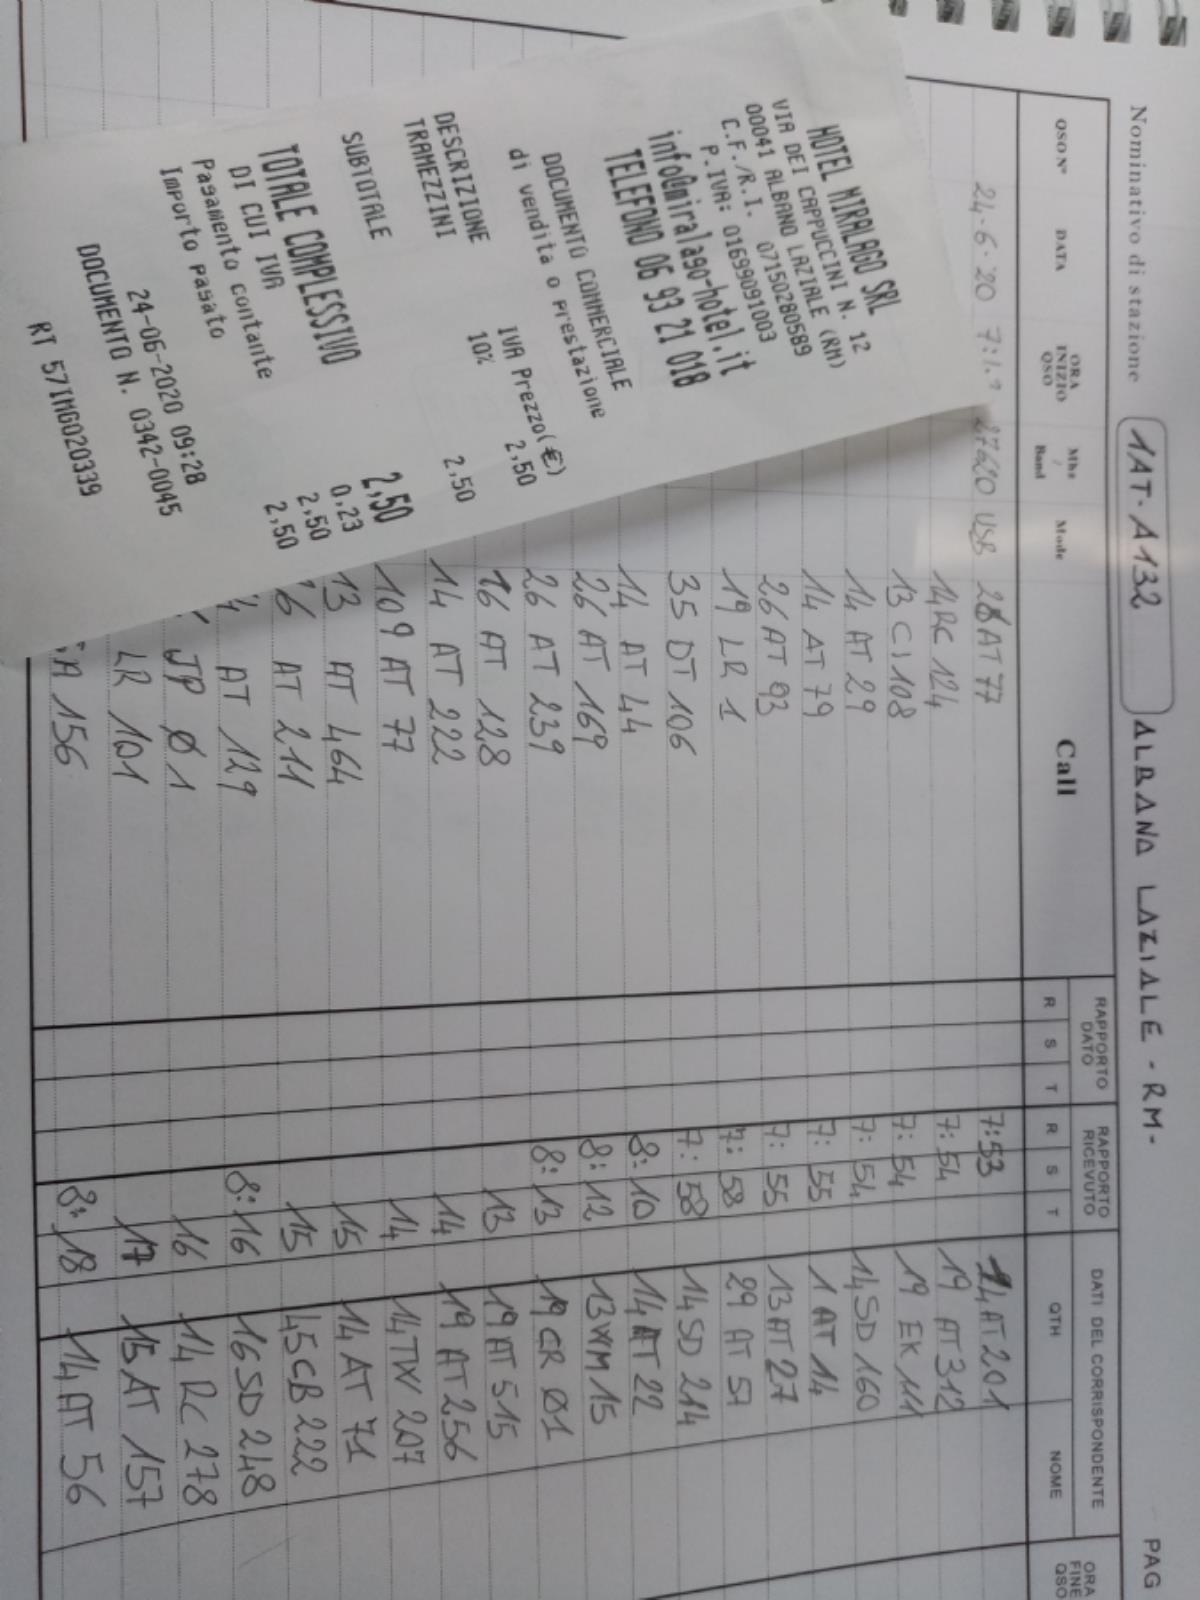 Nominativo di stazione 1AT-A132 ALBANO LAZIALE - RM- PAG
QSO N° DATA ORA INIZIO QSO Mhz / Band Mode Call RAPPORTO DATO R S T RAPPORTO RICEVUTO R S T DATI DEL CORRISPONDENTE QTH NOME ORA FINE QSO
24-6-20 27620 USB AT 77 7:53 AT 201
14 RC 124 7:54 19 AT 312
13 CI 108 7:54 19 EK 111
14 AT 29 7:54 14 SD 160
14 AT 79 7:55 1 AT 14
26 AT 93 7:55 13 AT 27
19 LR 1 7:58 29 AT 57
35 DT 106 7:58 14 SD 214
14 AT 44 8:10 14 AT 22
26 AT 169 8:12 13 WM 15
26 AT 239 8:13 19 CR Ø1
16 AT 128 13 19 AT 515
14 AT 222 14 19 AT 256
109 AT 77 14 14 TW 207
13 AT 464 15 14 AT 71
AT 211 15 CB 222
AT 129 8:16 16 SD 248
JP Ø1 16 14 RC 278
LR 101 17 15 AT 157
A 156 8:18 14 AT 56
HOTEL MIRALAGO SRL
VIA DEI CAPPUCCINI N. 12
00041 ALBANO LAZIALE (RM)
C.F./R.I. 07150280589
P.IVA: 01699091003
info@miralago-hotel.it
TELEFONO 06 93 21 018
DOCUMENTO COMMERCIALE
di vendita o prestazione
DESCRIZIONE IVA Prezzo(€)
TRAMEZZINI 10% 2,50
SUBTOTALE 2,50
TOTALE COMPLESSIVO 2,50
DI CUI IVA 0,23
Pagamento contante 2,50
Importo pagato 2,50
24-06-2020 09:28
DOCUMENTO N. 0342-0045
RT 57IMG020339